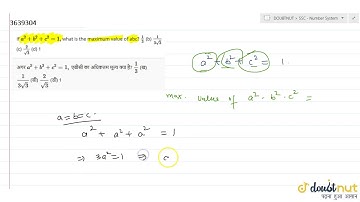 3639304
DOUBTNUT > SSC - Number System
If a² + b² + c² = 1, what is the maximum value of abc? 1/3 (b) 1/(3√3)
(c) 2/√3 (d) 1
अगर a² + b² + c² = 1, एबीसी का अधिकतम मूल्य क्या है? 1/3 (ख)
1/(3√3) (सी) 2/√3 (डी) 1
a² + b² + c² = 1.
max. value of a² · b² · c² =
a = b = c.
a² + a² + a² = 1
⇒ 3a² = 1 ⇒
doubtnut
पढ़ना हुआ आसान